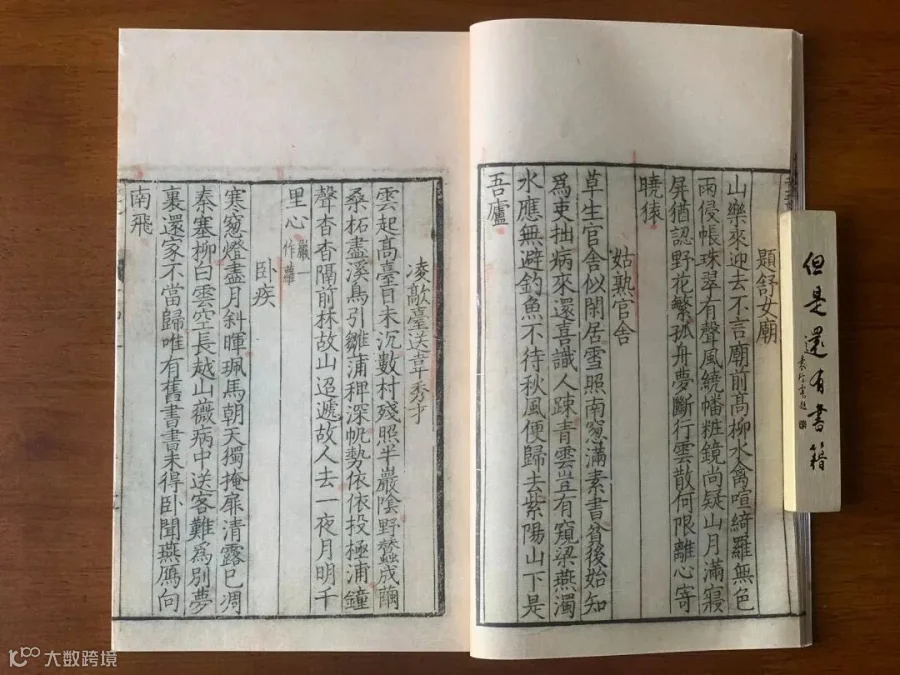 題舒女廟
山樂來迎去不言廟前髙柳水禽喧綺羅無色
雨侵帳珠翠有聲風繞幡粧鏡尚疑山月滿寢
屏猶認野花繁孤舟夢斷行雲散何限離心寄
曉猿
姑熟官舍
草生官舍似閑居雪照南窓滿素書貧後始知
為吏拙病來還喜識人踈青雲豈有窺梁燕濁
水應無避釣魚不待秋風便歸去紫陽山下是
吾廬
凌歊臺送韋秀才
雲起髙臺日未沉數村殘照半巖陰野蠶成繭
桑柘盡溪鳥引雛蒲稗深帆勢依依投極浦鐘
聲杳杳隔前林故山迢遞故人去一夜月明千
里心
巖一
作蘿
卧疾
寒窓燈盡月斜暉珮馬朝天獨掩扉清露已凋
秦塞柳白雲空長越山薇病中送客難為別夢
裏還家不當歸唯有舊書書未得卧聞燕鴈向
南飛
但是還有書籍
大数跨境